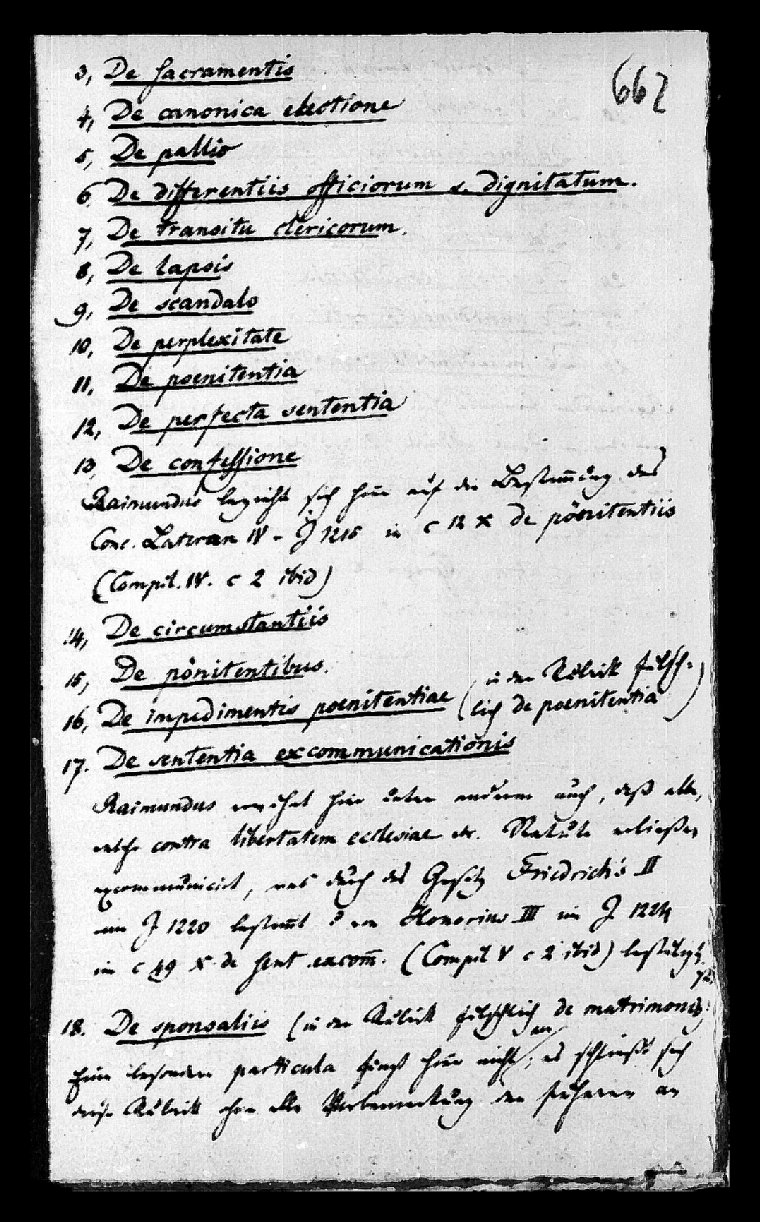 662
3, De Sacramentis
4, De canonica electione
5, De pallio
6 De differentiis officiorum s. dignitatum.
7, De transitu clericorum.
8, De lapsis
9, De scandalo
10, De perplexitate
11, De poenitentia
12, De perfecta sententia
13, De confessione
Raimundus bezieht sich hier auf die Bestimmung des
Conc. Lateran IV - J 1215 in c 12 X De pönitentiis
(Compil. IV. c 2 ibid)
14, De circumstantiis
15, De pönitentibus.
16, De impedimentis poenitentiae (in der Rubrik fälsch-
lich de poenitentia)
17. De sententia excommunicationis
Raimundus erwähnt hier unter anderm auch, daß alle,
welche contra libertatem ecclesiae etc. Statute erließen
excommunicirt, was durch das Gesetz Friedrich's II
im J 1220 bestimmt u von Honorius III im J 1224
in c 49 X de sent. excom̄. (Compil V c 2 ibid) bestätigt
18. De sponsaliis (in der Rubrik fälschlich de matrimonio)
Eine besondere particula fängt hier nicht an, es schließt sich
diese Rubrik ohne alle Vorbemerkung den früheren an